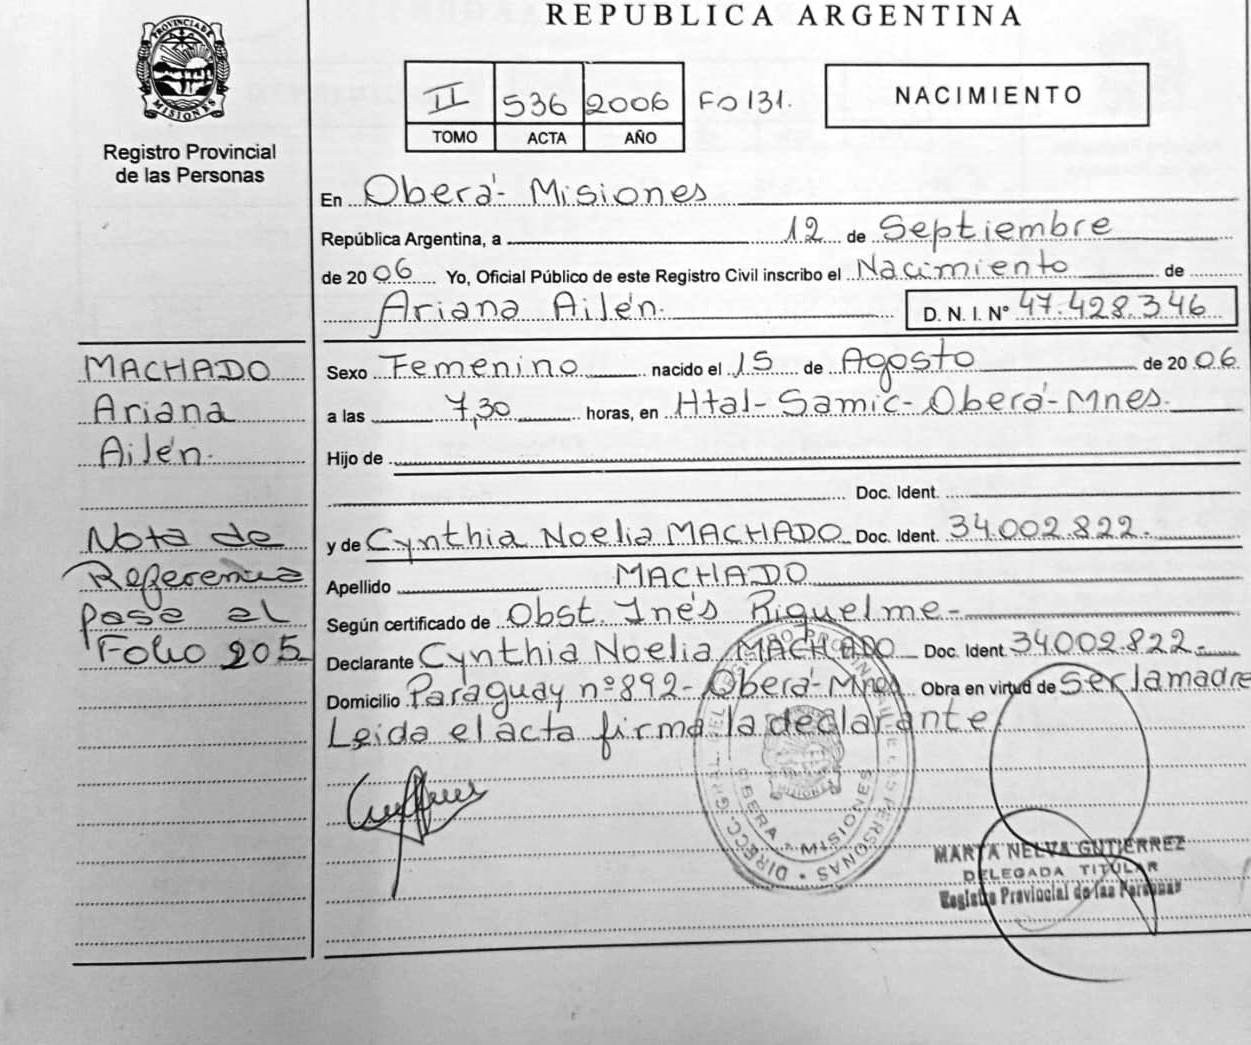 REPUBLICA ARGENTINA
PROVINCIA DE MISIONES
Registro Provincial
de las Personas
II 536 2006 Fo 131.
TOMO ACTA AÑO
NACIMIENTO
En Oberá - Misiones
República Argentina, a 12 de Septiembre
de 2006 Yo, Oficial Público de este Registro Civil inscribo el Nacimiento de
Ariana Ailén. D. N. I. N° 47.428.346
MACHADO
Ariana
Ailén.
Sexo Femenino nacido el 15 de Agosto de 2006
a las 7,30 horas, en Htal-Samic-Oberá-Mnes.
Hijo de
Doc. Ident.
y de Cynthia Noelia MACHADO Doc. Ident. 34.002.822.-
Apellido MACHADO
Según certificado de Obst. Inés Riquelme-
Declarante Cynthia Noelia MACHADO Doc. Ident. 34.002.822.-
Domicilio Paraguay nº 892- Oberá-Mnes Obra en virtud de ser la madre
Leida el acta firma la declarante.
Nota de
Referencia
pasa al
Folio 205
DIRECC. GRAL. DEL REGISTRO PROVINCIAL DE LAS PERSONAS
OBERA - MISIONES
MARTA NELVA GUTIERREZ
DELEGADA TITULAR
Registro Provincial de las Personas